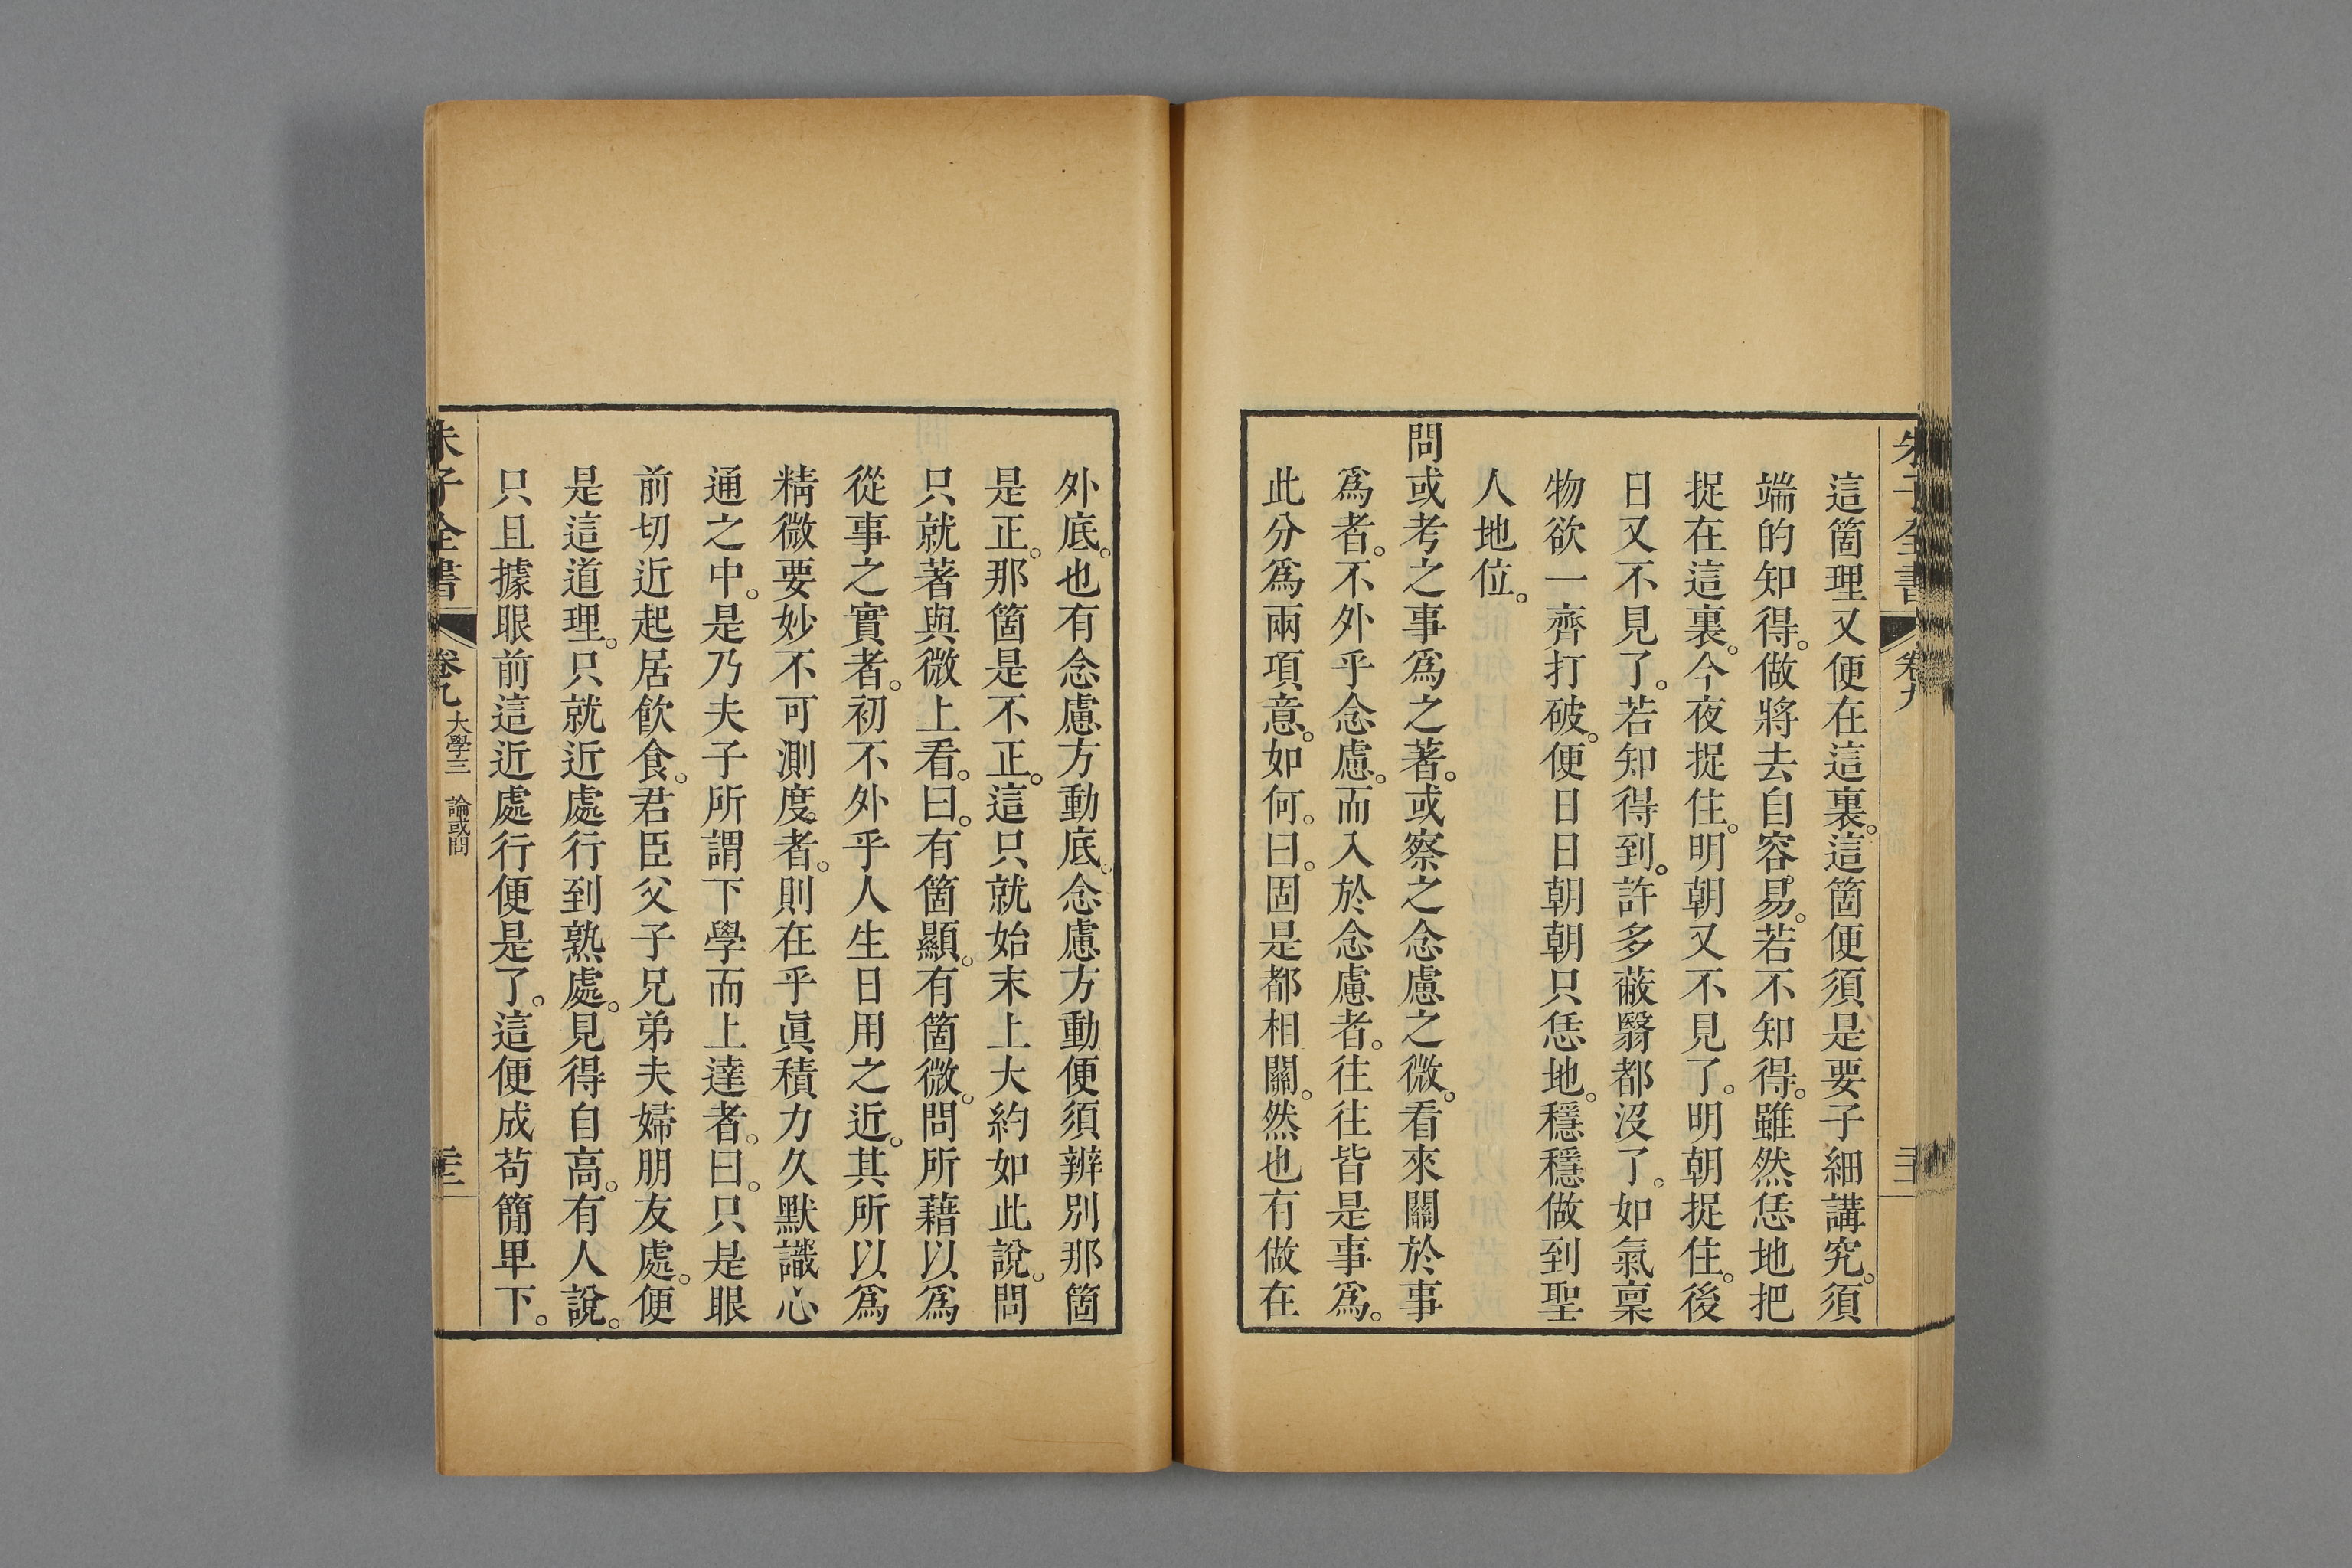 朱子全書
卷九
這箇理又便在這裏。這箇便須是要子細講究。須
端的知得。做將去自容易。若不知得。雖然恁地把
捉在這裏。今夜捉住。明朝又不見了。明朝捉住。後
日又不見了。若知得到。許多蔽翳都沒了。如氣稟
物欲一齊打破。便日日朝朝只恁地。穩穩做到聖
人地位。
問或考之事爲之著。或察之念慮之微。看來關於事
爲者。不外乎念慮。而入於念慮者。往往皆是事爲。
此分爲兩項意。如何。曰。固是都相關。然也有做在
外底。也有念慮方動底。念慮方動便須辨別那箇
是正。那箇是不正。這只就始末上大約如此說。問
只就著與微上看。曰。有箇顯。有箇微。問所藉以爲
從事之實者。初不外乎人生日用之近。其所以爲
精微要妙不可測度。者。則在乎眞積力久默識心
通之中。是乃夫子所謂下學而上達者。曰。只是眼
前切近起居飮食。君臣父子兄弟夫婦朋友處。便
是這道理。只就近處行到熟處。見得自高。有人說。
只且據眼前這近處行便是了。這便成苟簡卑下。
朱子全書
卷九
大學三 論或問